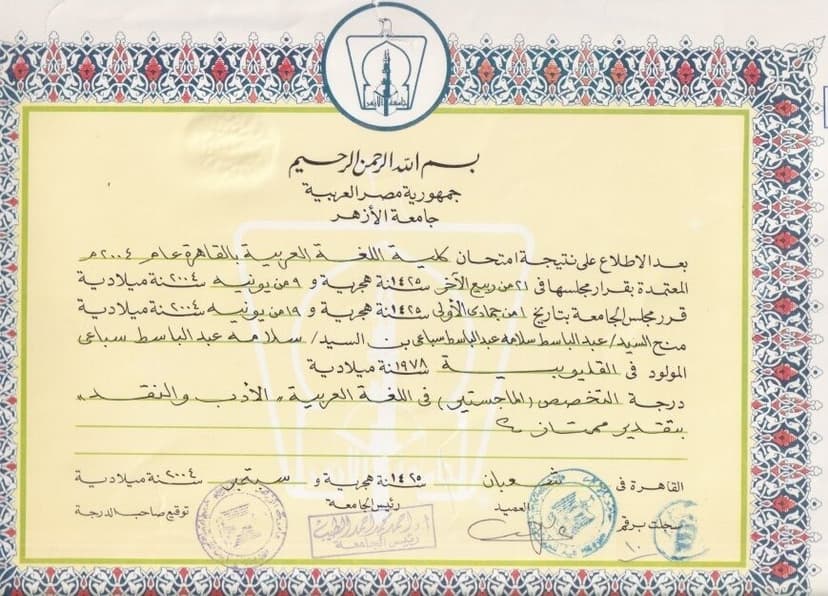 جامعة الأزهر
بسم الله الرحمن الرحيم
جمهورية مصر العربية
جامعة الأزهر
بعد الاطلاع على نتيجة امتحان كلية اللغة العربية بالقاهرة عام ٢٠٠٤م
المعتمدة بقرار مجلسها فى ٢١ من ربيع الآخر سنة ١٤٢٥ هجرية و ٩ من يونيه سنة ٢٠٠٤ ميلادية
قرر مجلس الجامعة بتاريخ ١ من جمادى الأولى سنة ١٤٢٥ هجرية و ١٩ من يونيه سنة ٢٠٠٤ ميلادية
منح السيد/ عبد الباسط سلامه عبد الباسط سباعى بن السيد/ سلامه عبد الباسط سباعى
المولود فى القليوبية سنة ١٩٧٨ ميلادية
درجة التخصص (الماجستير) فى اللغة العربية " الأدب والنقد "
بتقدير ممتاز
القاهرة فى شعبان سنة ١٤٢٥ هجرية و سبتمبر سنة ٢٠٠٤ ميلادية
سجلت برقم العميد رئيس الجامعة توقيع صاحب الدرجة
١٠ أ.د/ احمد محمد احمد الطيب
رئيس الجامعة